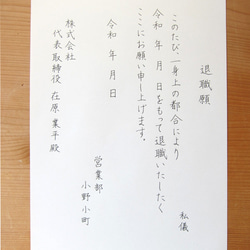 退職願
私儀
このたび、一身上の都合により
令和 年 月 日をもって退職いたしたく
ここにお願い申し上げます。
令和 年 月 日
営業部
小野小町
株式会社
代表取締役 在原業平殿